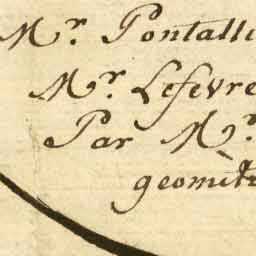 Mr. Pontalli
Mr. Lefevre
Par Mr.
geomet